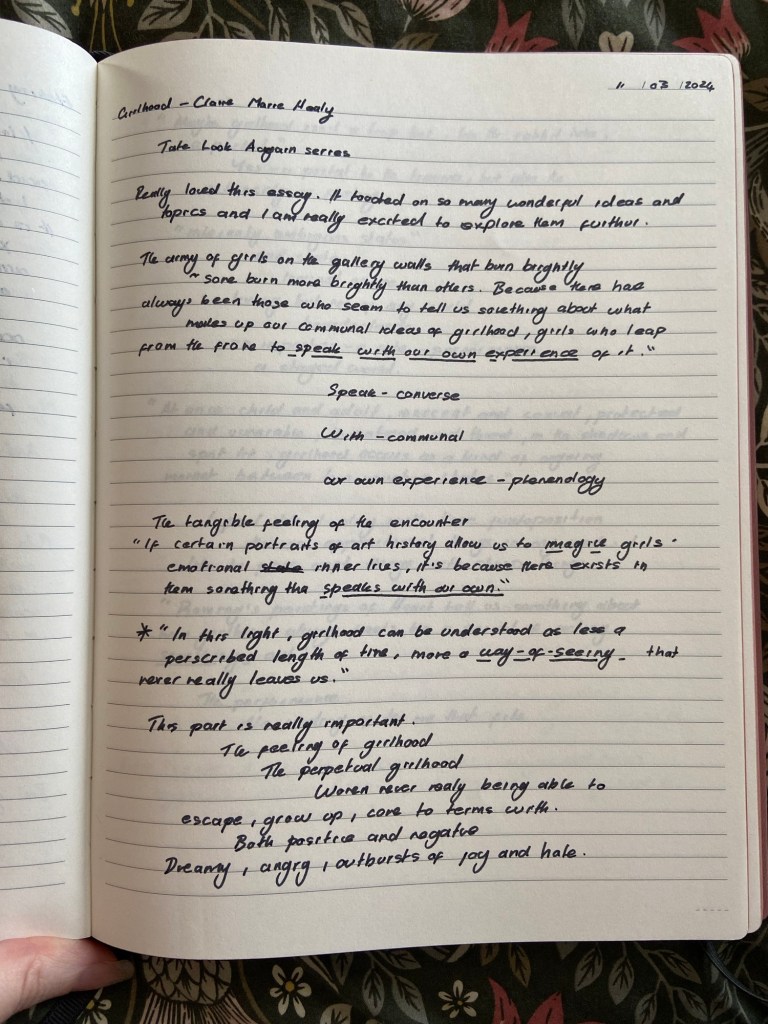 11 / 03 / 2024
Girlhood - Claire Marie Healy
Tate Look Again series
Really loved this essay. It touched on so many wonderful ideas and
topics and I am really excited to explore them furthur.
The army of girls on the gallery walls that burn brightly
~ some burn more brightly than others. Because there has
always been those who seem to tell us something about what
makes up our communal ideas of girlhood, girls who leap
from the frame to speak with our own experience of it."
Speak - converse
With - communal
our own experience - phenenology
The tangible feeling of the encounter
"If certain portraits of art history allow us to imagine girls'
emotional state inner lives, it's because there exists in
them something tha speaks with our own."
* "In this light, girlhood can be understood as less a
perscribed length of time, more a way-of-seeing that
never really leaves us."
This part is really important.
The feeling of girlhood
The perpetual girlhood
Women never realy being able to
escape, grow up, come to terms with.
Both positive and negative
Dreamy, angry, outbursts of joy and hate.